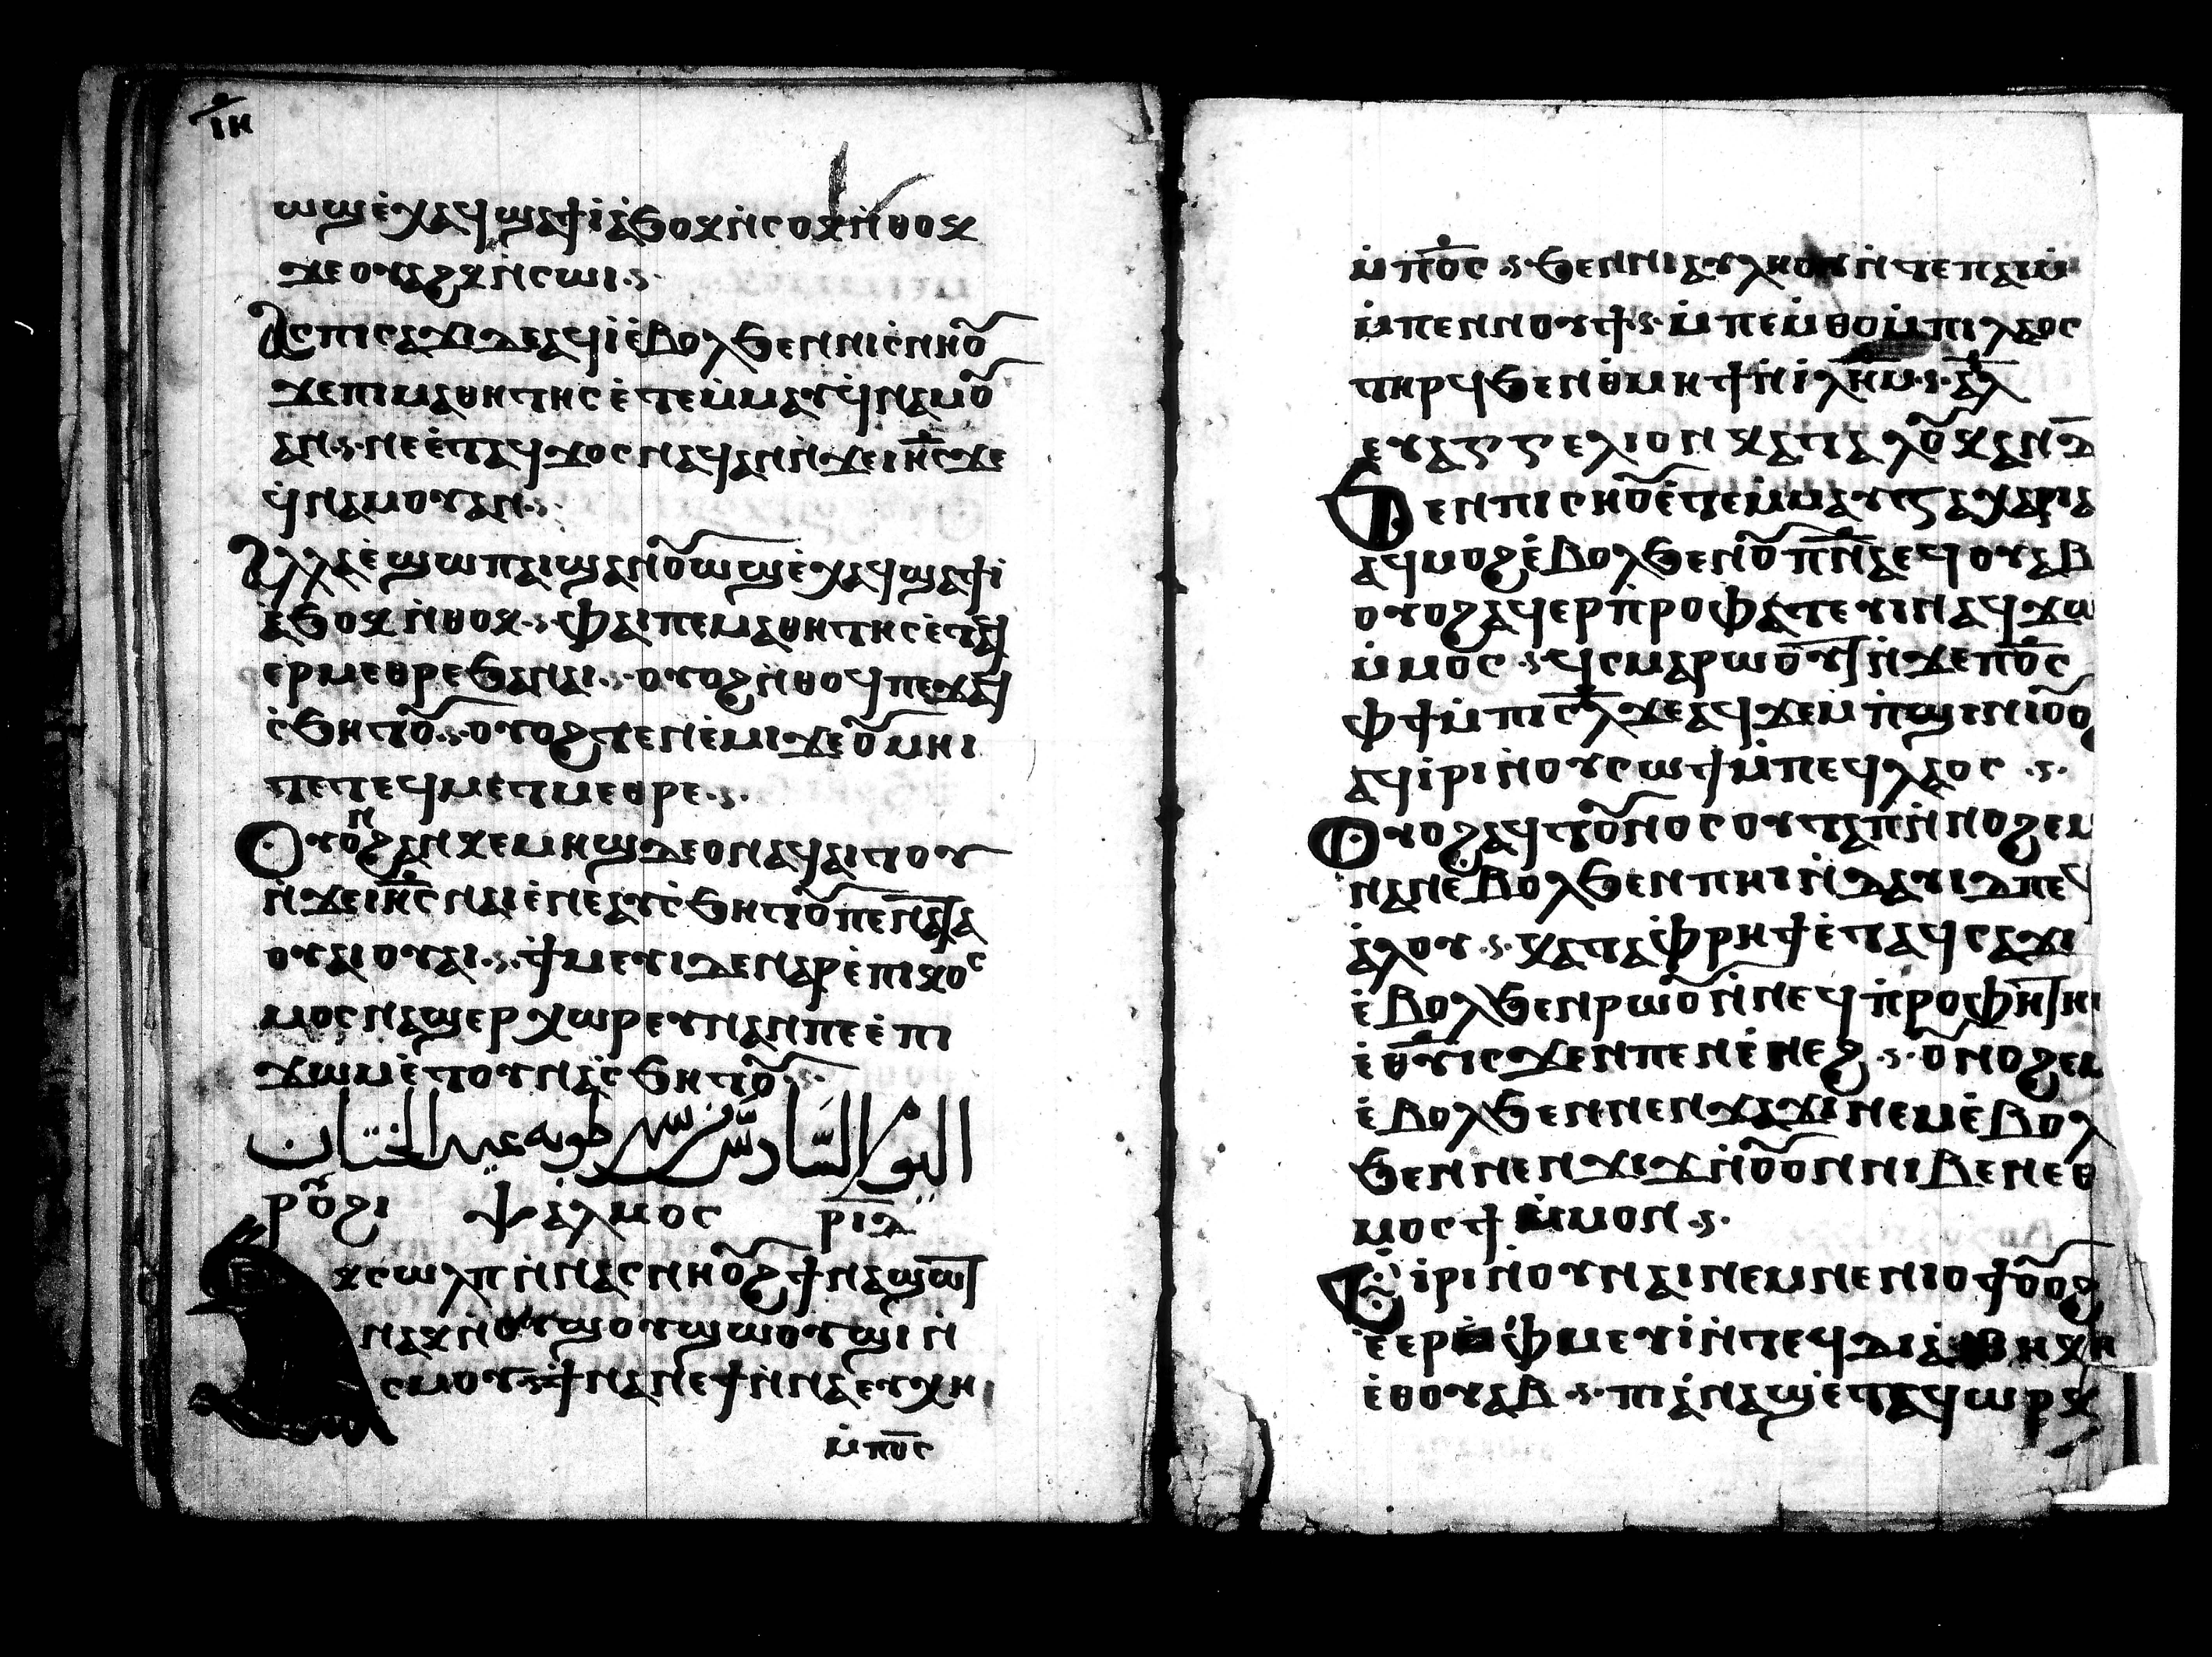 ⲓⲏ
ⲱϣⲉ̀ⲭⲁϥ ϣⲁϯⲓ̀ ⲁ̀ϧⲟⲕ ⲛ̀ⲥⲟⲕ ⲛ̀ⲑⲟⲕ
ϫⲉ ⲟⲩⲁϩⲕ ⲛ̀ⲥⲱⲓ ·ⲋ·
Ⲁⲥ ⲡⲓⲥⲁϫⲓ ⲇⲉ ⲁϥⲓ̀ ⲉ̀ⲃⲟⲗ ϧⲉⲛ ⲛⲓⲥ̀ⲛⲏⲟ̅
ϫⲉ ⲡⲓⲙⲁⲑⲏⲧⲏⲥ ⲉ̀ⲧⲉⲙ̀ⲙⲁⲩ ϥ̀ⲛⲁⲙⲟ̅
ⲁⲛ ·ⲋ· ⲛⲉ ⲉ̀ⲧⲁϥϫⲟⲥ ⲛⲁϥ ⲁⲛ ⲛ̀ϫⲉ ⲓⲏ̅ⲥ ϫⲉ
ϥ̀ⲛⲁⲙⲟⲩ ⲁⲛ ·ⲋ·
Ⲁⲗⲗⲁ ⲉ̀ϣⲱⲡ ⲁⲓϣⲁⲛⲟ̅ⲱϣ ⲉ̀ⲭⲁϥ ϣⲁϯⲓ̀
ⲁ̀ϧⲟⲕ ⲛ̀ⲑⲟⲕ ·ⲋ· ⲫⲁⲓ ⲡⲉ ⲙⲁⲑⲏⲧⲏⲥ ⲉ̀ⲧⲁϥ
ⲉⲣⲙⲉⲑⲣⲉ ϧⲁ ⲛⲁⲓ ·ⲋ· ⲟⲩⲟϩ ⲛ̀ⲑⲟϥ ⲡⲉⲧⲁϥ
ⲥ̀ϧⲏⲧⲟ̅ ·ⲋ· ⲟⲩⲟϩ ⲧⲉⲛⲉ̀ⲙⲓ ϫⲉ ⲟ̅ⲙⲏⲓ
ⲧⲉ ⲧⲉϥⲙⲉⲧⲙⲉⲑⲣⲉ ·ⲋ·
Ⲟⲩⲟⲛ ϩⲁⲛⲕⲉⲙⲏϣ ⲇⲉ ⲟⲛ ⲁϥⲁⲓⲧⲟⲩ
ⲛ̀ϫⲉ ⲓⲏ̅ⲥ ⲛⲁⲓ ⲉ̀ⲛⲉⲁⲩⲥ̀ϧⲏⲧⲟ̅ ⲡⲉ
ⲟⲩⲁⲓ ⲟⲩⲁⲓ ·ⲋ· ϯⲙⲉⲩⲓ ϫⲉ ⲛⲁⲣⲉ ⲡⲓⲕⲟⲥ
ⲙⲟⲥ ⲛⲁϣⲉⲣⲭⲱⲣⲉⲩⲛ ⲁⲛ ⲡⲉ ⲉ̀ⲡⲓ
ϫⲱⲙ ⲉ̀ⲧⲟⲩⲛⲁⲥ̀ϧⲏⲧⲟ̅ ·ⲋ·
اليوم السادس من شهر طوبه عيد الختان
ⲣⲟ̅ϩⲓ ⲯⲁⲗⲙⲟⲥ ⲣⲓⲇ
ⲕⲥⲱⲗⲡ ⲛ̀ⲛⲁⲥⲛⲏⲟ̅ϩ ϯⲛⲁϣⲱⲧ
ⲛⲁⲕ ⲛ̀ⲟⲩϣⲟⲩϣⲱⲟⲩϣⲓ ⲛ̀
ⲥⲙⲟⲩ ·ⲋ· ϯⲛⲁⲛⲉ ϯⲛ̀ⲛⲁⲉⲩⲭⲏ
ⲙ̀ⲡⲟ̅ⲥ
ⲙ̀ⲡⲟ̅ⲥ ·ⲋ· ϧⲉⲛ ⲛⲓⲁⲩⲗⲏⲟⲩ ⲛ̀ⲧⲉ ⲡⲁⲓⲙ
ⲙ̀ⲡⲉⲛⲛⲟⲩϯ ·ⲋ· ⲙ̀ⲡⲉⲙ̀ⲑⲟ ⲙ̀ⲡⲓⲗⲁⲟⲥ
ⲧⲏⲣϥ ϧⲉⲛ ⲑ̀ⲙⲏϯ ⲛ̀ⲓ̀ⲗⲏ̅ⲙ ·ⲋ· ⲁ̅ⲗ
ⲉⲩⲁⲅⲅⲉⲗⲓⲟⲛ ⲕⲁⲧⲁ ⲗⲟ̅ⲕⲁⲛ ⲁ̅
Ϧⲉⲛ ⲡⲓⲥⲏⲟ̅ ⲉ̀ⲧⲉⲙ̀ⲙⲁⲩ ⲍⲁⲭⲁⲣⲓⲁ
ⲁϥⲙⲟϩ ⲉ̀ⲃⲟⲗ ϧⲉⲛ ⲟ̅ⲡⲛ̅ⲁ ⲉϥⲟⲩⲁⲃ
ⲟⲩⲟϩ ⲁϥⲉⲣⲡ̀ⲣⲟⲫⲁⲧⲉⲩⲓⲛ ⲁϥϫⲱ
ⲙ̀ⲙⲟⲥ ·ⲋ· ϥ̀ⲥⲙⲁⲣⲱⲟⲩⲧ ⲛ̀ϫⲉ ⲡⲟ̅ⲥ
ⲫϯ ⲙ̀ⲡⲓⲥ̅ⲗ ϫⲉ ⲁϥϫⲉⲙ ⲡ̀ϣⲓⲛⲓ ⲟ̅ⲟ
ⲁϥⲓ̀ⲣⲓ ⲛ̀ⲟⲩⲥⲱϯ ⲙ̀ⲡⲉϥⲗⲁⲟⲥ ·ⲋ·
Ⲟⲩⲟϩ ⲁϥⲧⲟ̅ⲛⲟⲥ ⲟⲩⲧⲁⲡ ⲛ̀ⲛⲟϩⲉⲙ
ⲛⲁⲛ ⲉ̀ⲃⲟⲗ ϧⲉⲛ ⲡⲏⲓ ⲛ̀ⲇⲁⲩⲓⲇ ⲡⲉϥ
ⲁ̀ⲗⲟⲩ ·ⲋ· ⲕⲁⲧⲁ ⲫ̀ⲣⲏϯ ⲉ̀ⲧⲁϥⲥⲁϫⲓ
ⲉ̀ⲃⲟⲗ ϧⲉⲛ ⲣⲱⲟ̅ ⲛ̀ⲛⲉϥⲡ̀ⲣⲟⲫⲏⲧⲏ
ⲉ̀ⲑ̅ⲩ ⲓⲥϫⲉⲛ ⲡⲉⲛⲉ̀ⲛⲉϩ ·ⲋ· ⲟ̅ⲛⲟϩⲉⲙ
ⲉ̀ⲃⲟⲗ ϧⲉⲛ ⲛⲉⲛϫⲁϫⲓ ⲛⲉⲙ ⲉ̀ⲃⲟⲗ
ϧⲉⲛ ⲛⲉⲛϫⲓϫ ⲛ̀ⲟ̅ⲟⲛ ⲛⲓⲃⲉⲛ ⲉⲑ
ⲙⲟⲥϯ ⲙ̀ⲙⲟⲛ ·ⲋ·
Ⲉ̀ⲓ̀ⲣⲓ ⲛ̀ⲟⲩⲛⲁⲓ ⲛⲉⲙ ⲛⲉⲛⲓⲟϯ ⲟ̅ⲟϩ
ⲉ̀ⲉⲣ ⲫ̀ⲙⲉⲩⲓ̀ ⲛ̀ⲧⲉϥⲇⲓⲁⲑⲏⲕⲏ
ⲉ̀ⲑⲟⲩⲁⲃ ·ⲋ· ⲡⲓⲁ̀ⲛⲁϣ ⲉ̀ⲧⲁϥⲱⲣⲕ